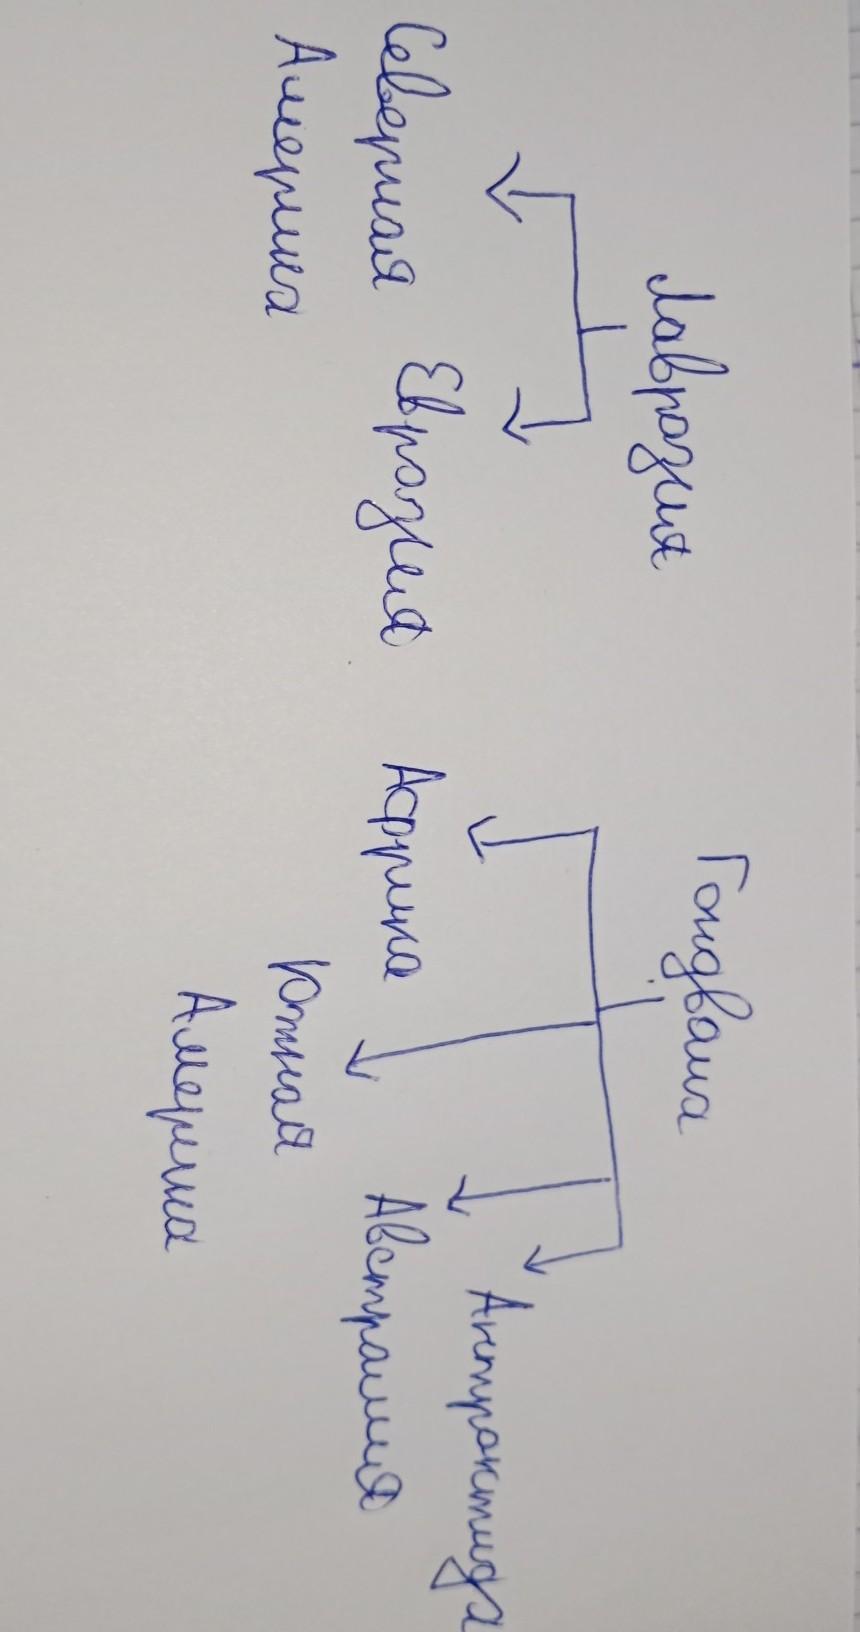 Лавразия
Северная
Америка
Евразия
Гондвана
Африка
Южная
Америка
Австралия
Антрактида